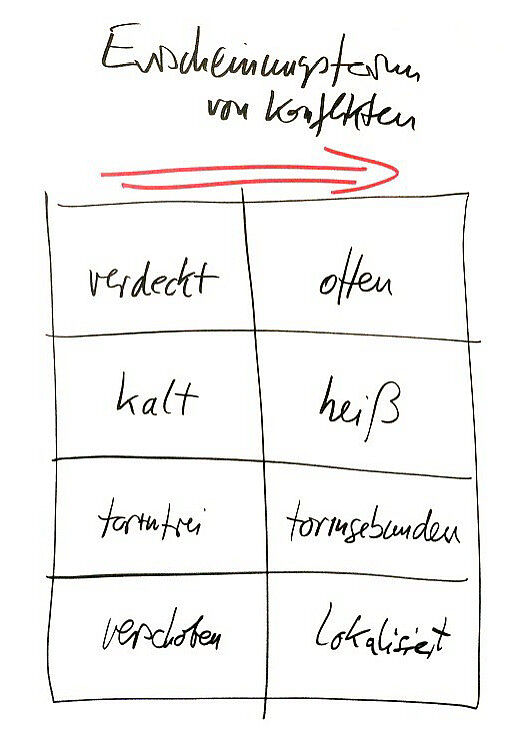 Erscheinungsform
von Konflikten
verdeckt offen
kalt heiß
formfrei formgebunden
verschoben lokalisiert